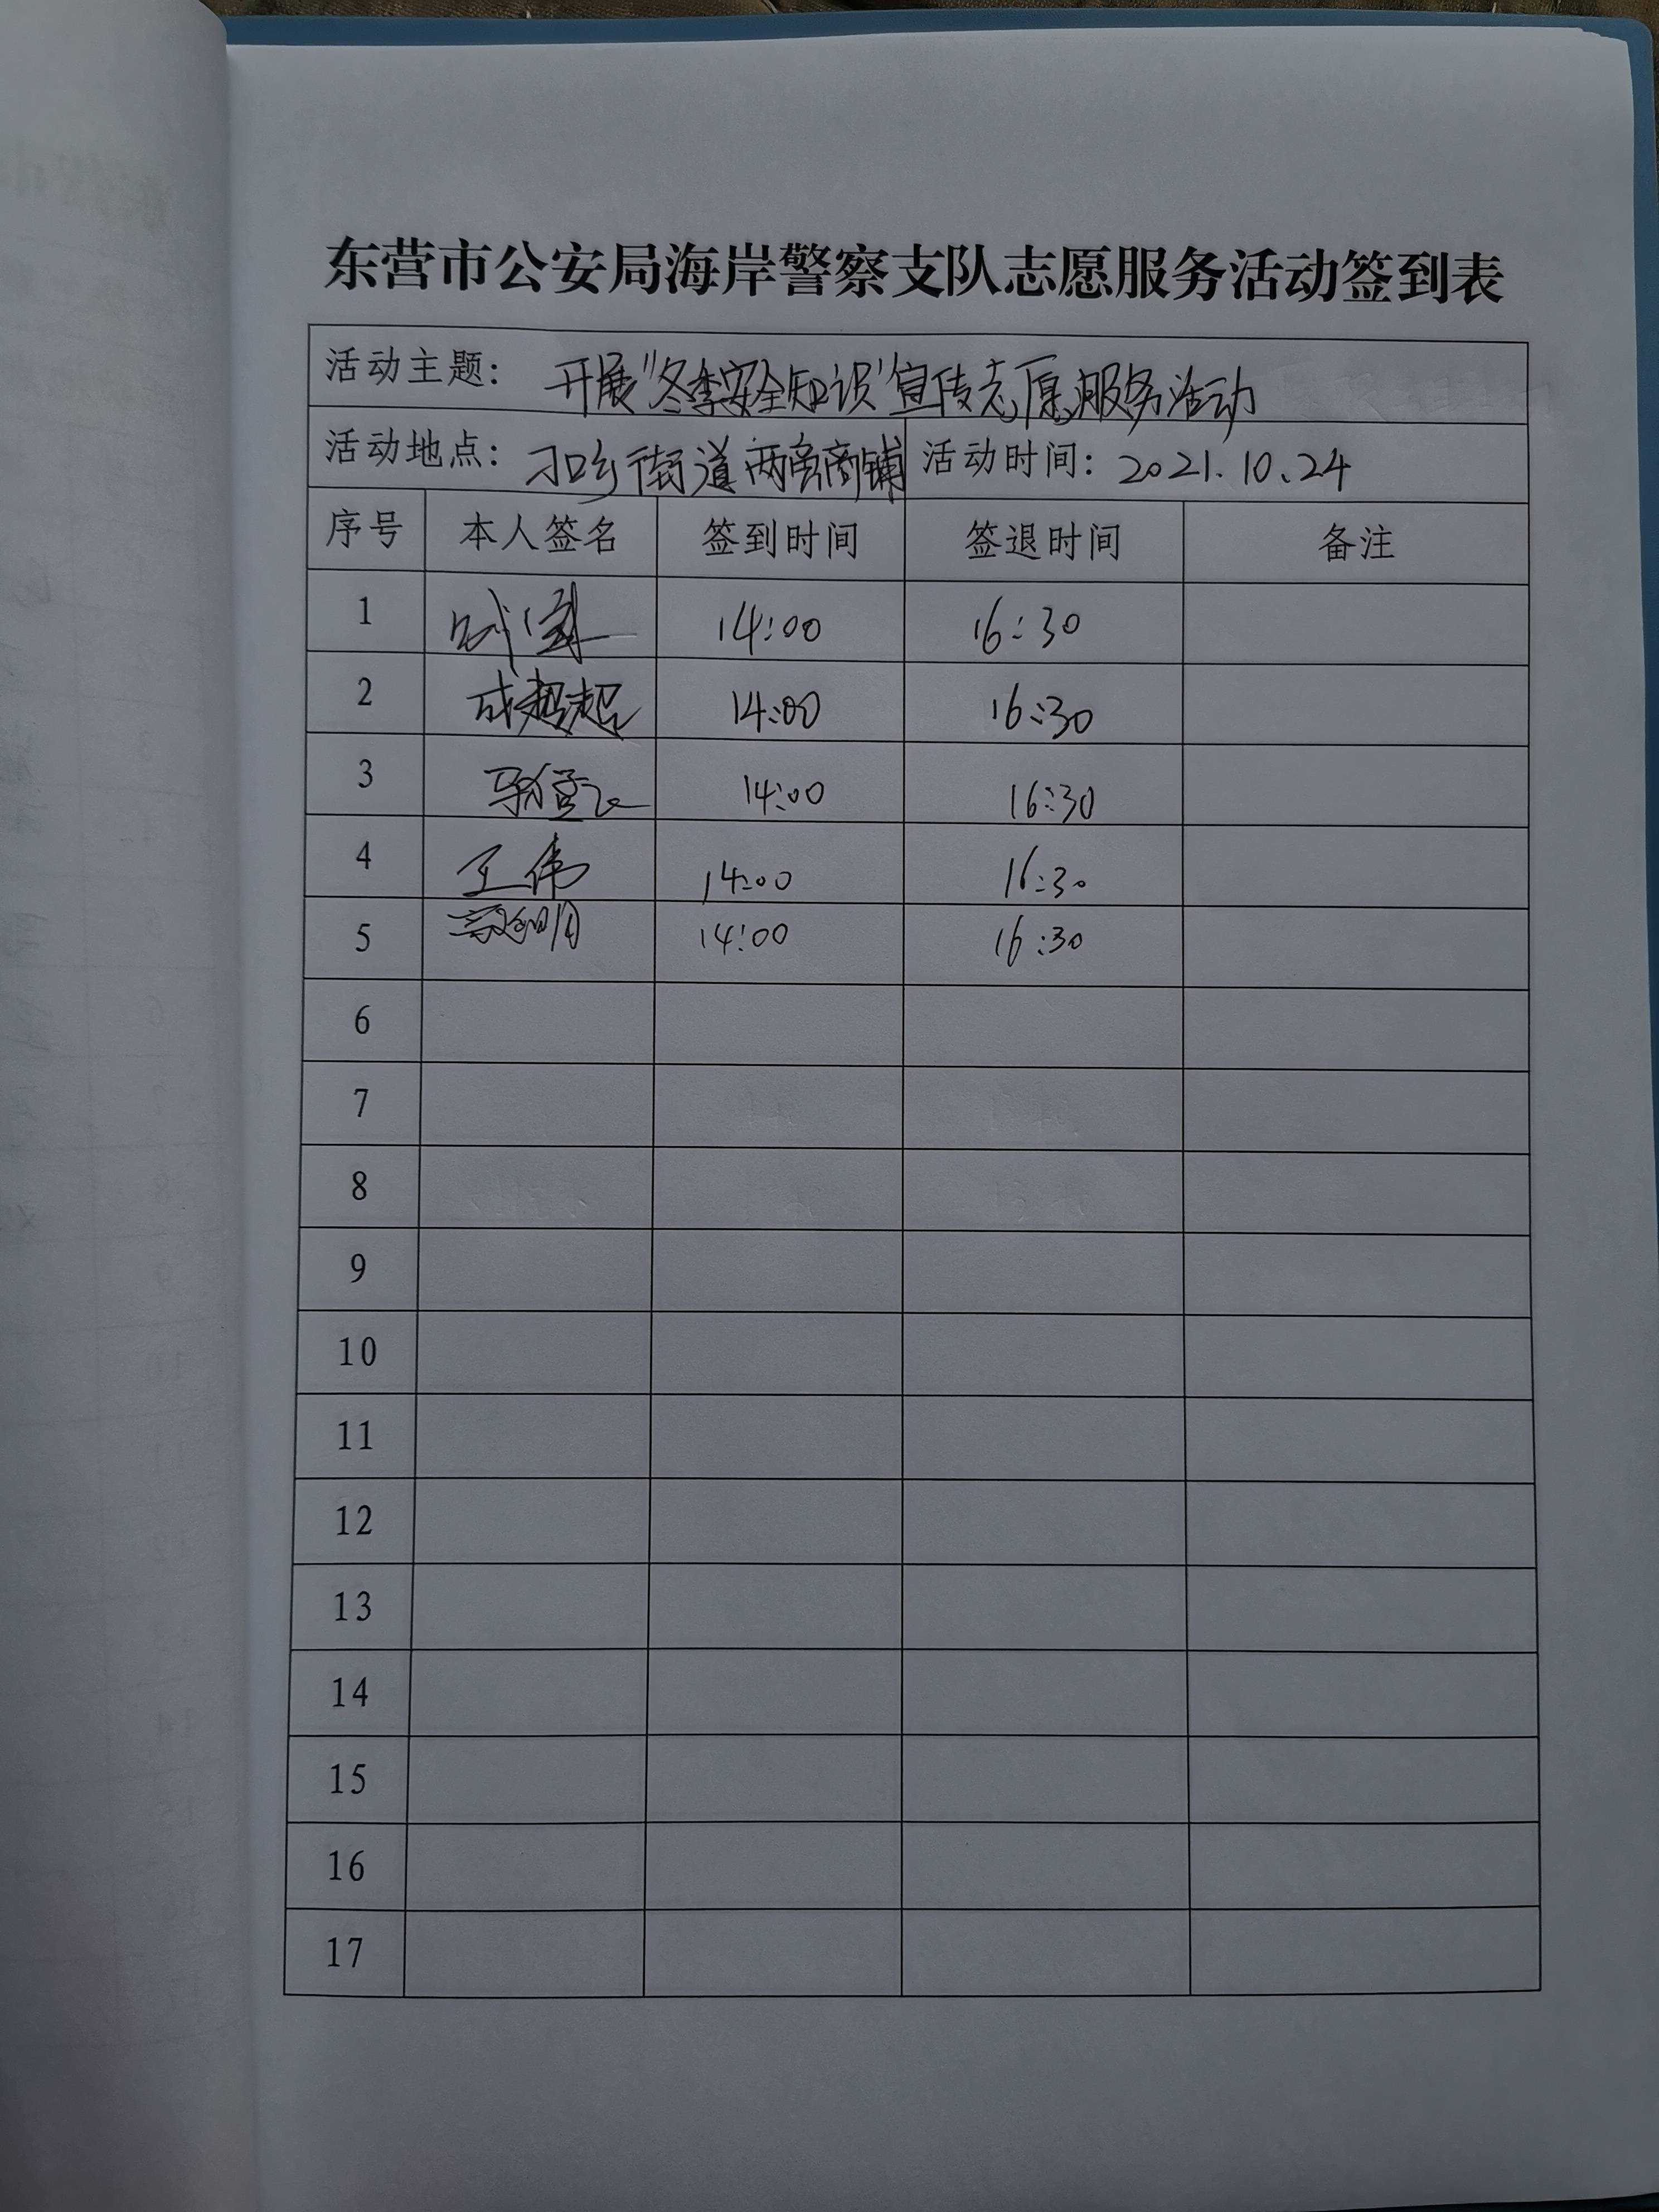 东营市公安局海岸警察支队志愿服务活动签到表
活动主题： 开展“冬季安全知识”宣传志愿服务活动
活动地点： 刁口乡街道两旁商铺 活动时间：2021.10.24
序号 本人签名 签到时间 签退时间 备注
1 14:00 16:30
2 成超超 14:00 16:30
3 14:00 16:30
4 王伟 14:00 16:30
5 14:00 16:30
6
7
8
9
10
11
12
13
14
15
16
17